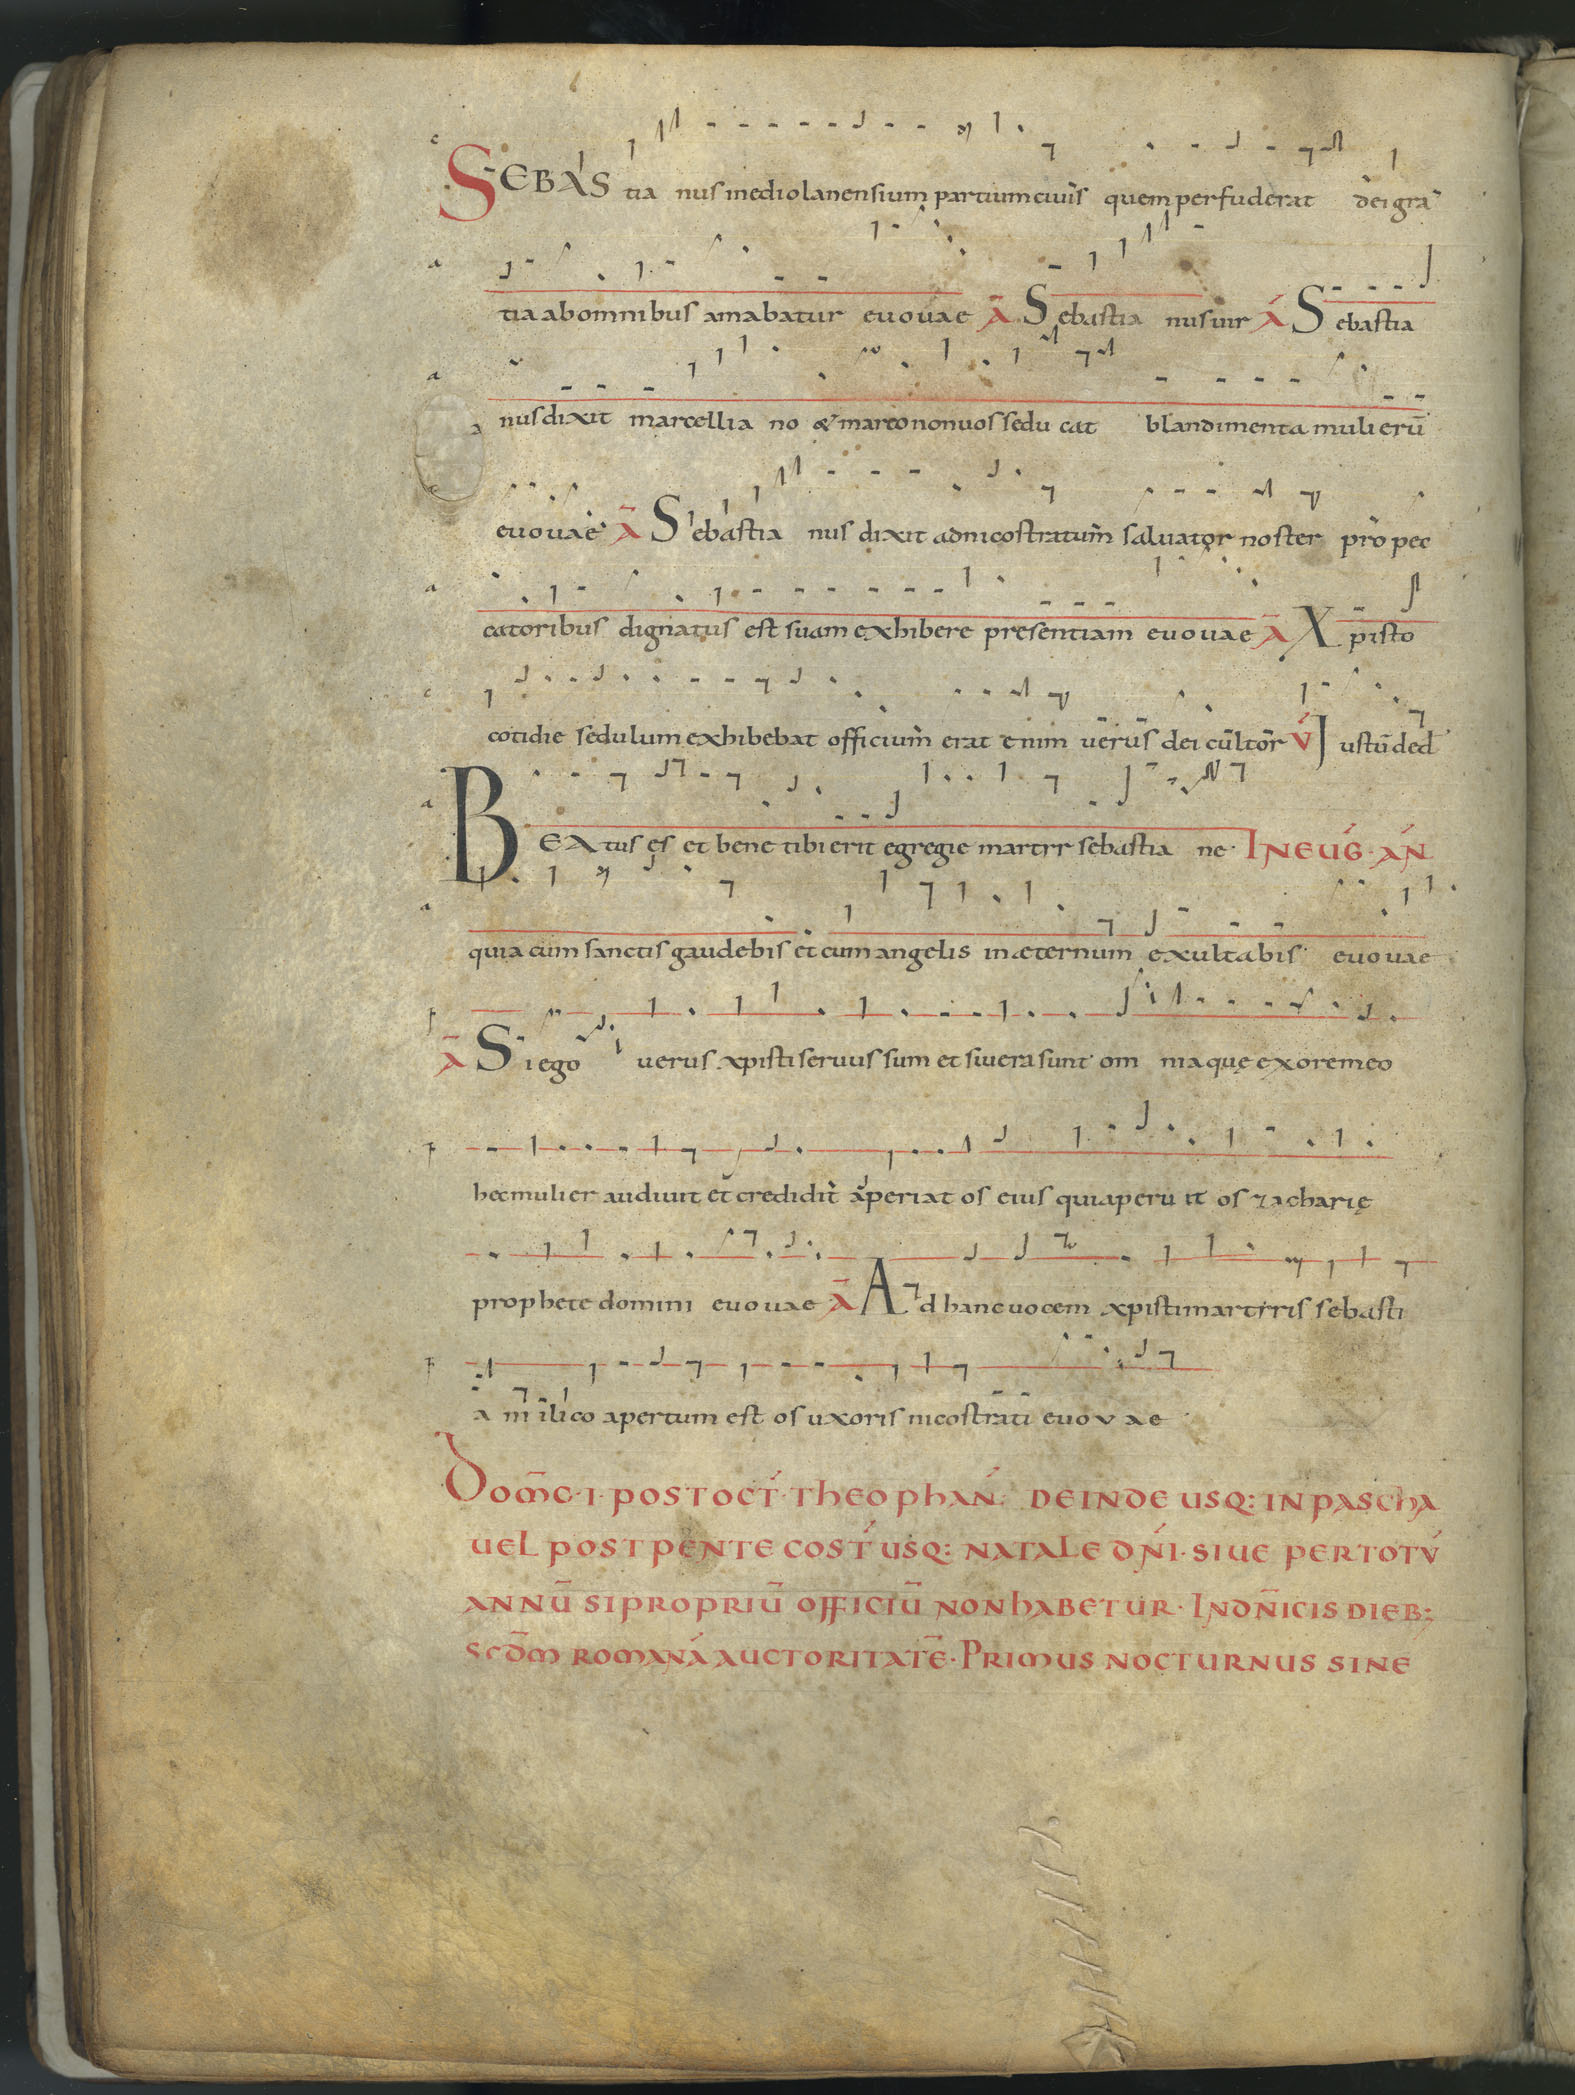 c
SEBAS tia nus mediolanensium partium ciuis quem perfuderat dei gra
a
tia ab omnibus amabatur euouae Ā Sebastia nus uir Á Sebastia
a
nus dixit marcellia no & marco non uos sedu cat blandimenta mulierū
c
euouae Ā Sebastia nus dixit ad nicostratum saluator noster pro pec
a
catoribus dignatus est suam exhibere presentiam euouae Ā Xpisto
c
cotidie sedulum exhibebat officium erat enim uerus dei cultor V́ Iustū ded
a
BEAtus es et bene tibi erit egregie martyr sebastia ne· IN EUG̅· AŃ
a
quia cum sanctis gaudebis et cum angelis in æternum exultabis· euouae
F
Ā Si ego uerus xpisti seruus sum et si uera sunt om nia quę ex ore meo
F
hec mulier audiuit et credidit aperiat os eius qui aperu it os zacharię
prophete domini euouae Ā Ad hanc uocem xpisti martyris sebasti
F
a ni ilico apertum est os uxoris nicostrati euouae
Dom̄c· I· POST OCT́· TheophAŃ· DEINDE USQ: IN PASChA
UEL POST PENTECOST́ USQ: NATALE DN̄I· SIUE PER TOTV́
ANNŪ SI PROPRIŪ OFFICIŪ NON hABETUR· IN DN̄ICIS DIEB:
SCD̄M ROMANÁ AUCTORITATĒ· PRIMUS NOCTURNUS SINE